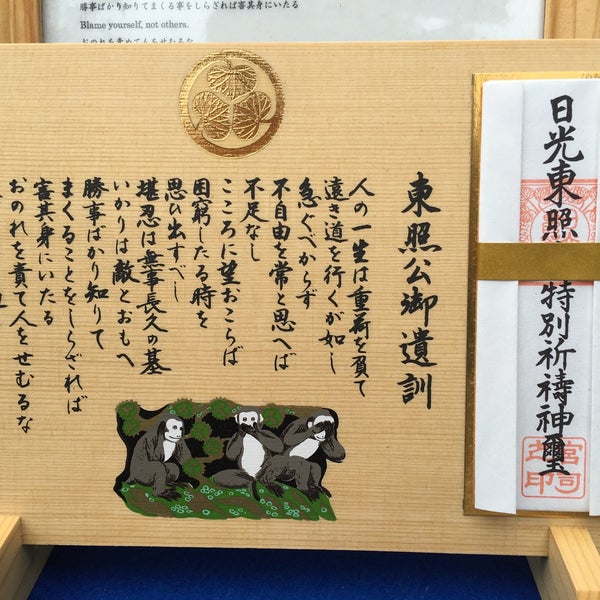 勝事ばかり知りてまくる事をしらざれば害其身にいたる
Blame yourself, not others.
おのれを責めて人をせむるな
東照公御遺訓
人の一生は重荷を負て
遠き道を行くが如し
急ぐべからず
不自由を常と思へば
不足なし
こころに望おこらば
困窮したる時を
思ひ出すべし
堪忍は無事長久の基
いかりは敵とおもへ
勝事ばかり知りて
まくることをしらざれば
害其身にいたる
おのれを責て人をせむるな
日光東照
特別祈祷神璽
宮司之印